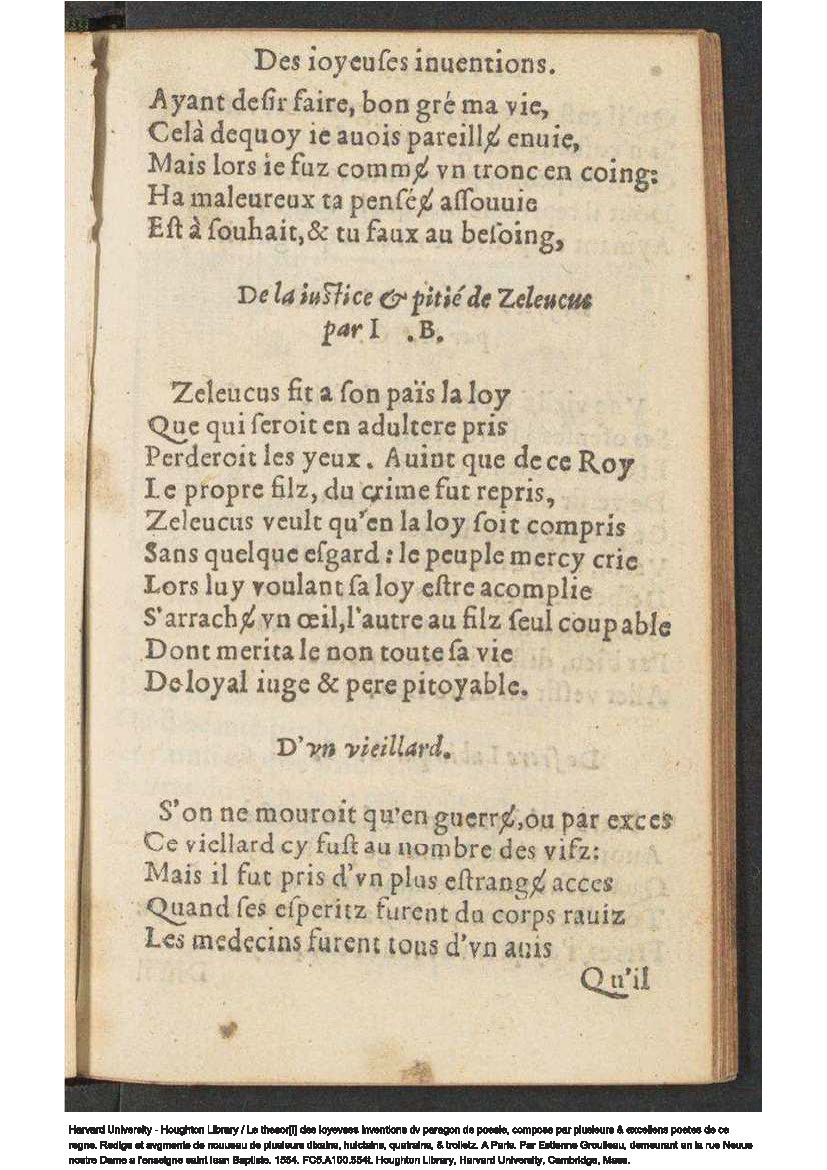 Des ioyeuſes inuentions.
Ayant deſir faire, bon gré ma vie,
Celà dequoy ie auois pareillɇ enuie,
Mais lors ie fuz commɇ vn tronc en coing:
Ha maleureux ta penſéɇ aſſouuie
Eſt à ſouhait, & tu faux au beſoing,
De la iuſtice & pitié de Zeleucus
par I .B.
Zeleucus fit a ſon païs la loy
Que qui ſeroit en adultere pris
Perderoit les yeux. Auint que de ce Roy
Le propre filz, du crime fut repris,
Zeleucus veult qu'en la loy ſoit compris
Sans quelque eſgard: le peuple mercy crie
Lors luy voulant ſa loy eſtre acomplie
S'arrachɇ vn œil, l'autre au filz ſeul coupable
Dont merita le non toute ſa vie
De loyal iuge & pere pitoyable.
D'vn vieillard.
S'on ne mouroit qu'en guerrɇ, ou par exces
Ce viellard cy fuſt au nombre des vifz:
Mais il fut pris d'vn plus eſtrangɇ acces
Quand ſes eſperitz furent du corps rauiz
Les medecins furent tous d'vn auis
Qu'il
Harvard University - Houghton Library / Le thesor[i] des ioyevses inventions dv paragon de poesie, compose par plusieurs & excellens poetes de ce
regne. Redige et avgmente de nouueau de plusieurs dixains, huictains, quatrains, & trolletz. A Paris. Par Estienne Groulleau, demeurant en la rue Neuue
nostre Dame a l'enseigne saint Iean Baptiste. 1554. FC5.A100.554t. Houghton Library, Harvard University, Cambridge, Mass.